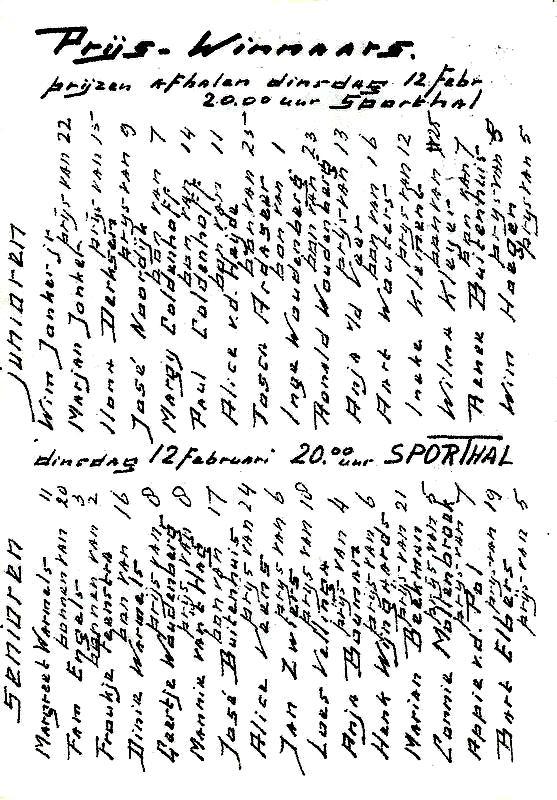 Prijs-Winnaars.
prijzen afhalen dinsdag 12 febr
20.00 uur Sporthal
Junioren
Wim Jonker jr
prijs van 22
Marjan Jonker
prijs van 15
Ilona Derksen
prijs van 9
José Noordijk
bon van 7
Margy Coldenhoff
bon van 14
Paul Coldenhoff
bon van 11
Alice v.d. Heyde
bon van 25
Tosca Ardaseer
bon van 1
Inge Woudenberg
bon van 23
Ronald Woudenberg
prijs van 13
Anja v/d Veer
bon van 16
Aart Wouters
prijs van 12
Ineke Klement
bon van 25
Wilma Kleyer
bon van 7
Renee Buitenhuis
prijs van 8
Wim Hoegen
prijs van 5
dinsdag 12 februari 20.00 uur SPORTHAL
Senioren
Margreet Warmels 11
bonnen van 20
Fam Engels 3
bonnen van 2
Froukje Feenstra
bon van 16
Dinie Warmels
prijs van 8
Geertje Woudenberg
prijs van 8
Mannie van't Hag
bon van 17
José Buitenhuis
prijs van 24
Alice Veens
prijs van 6
Jan Zwiers
prijs van 18
Loes Vellinga
prijs van 4
Anja Bouman
prijs van 6
Henk Wijngaards
prijs van 21
Marian Beekman
prijs van 5
Connie Mollenbroek
prijs van 7
Appie v.d. Pol
prijs van 19
Bart Elbers
prijs van 5